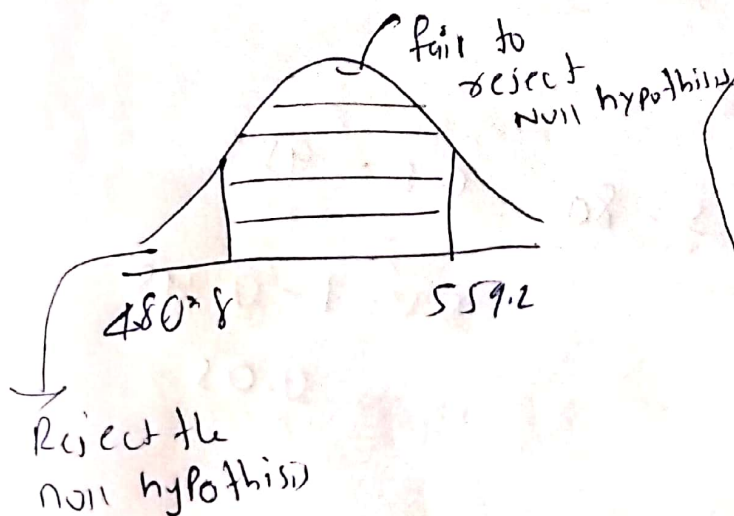 fail to
reject
Null hypothisis
480.8
559.2
Reject the
null hypothisis